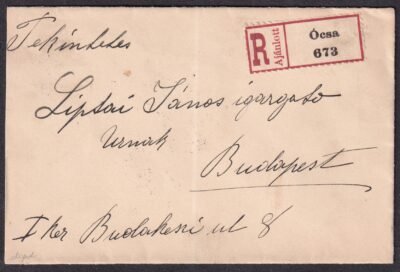 Tekintetes
R Ajánlott
Ócsa
673
Liptai János igazgató
urnak
Budapest
I ker Budakeszi ut 8